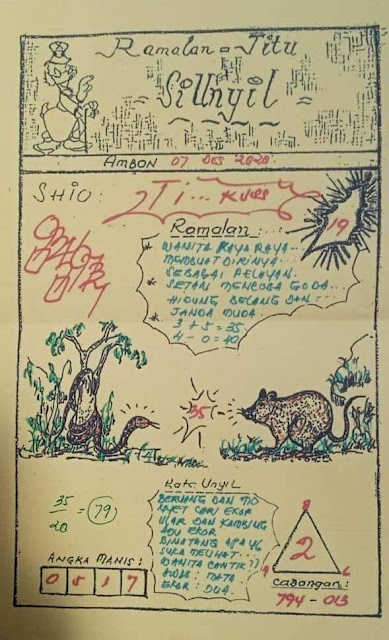 Ramalan = Jitu
SiUnyil =
AMBON 07 DES 2020
SHIO:
19
Ramalan
* WANITA KAYA RAYA
MEMBUAT DIRINYA
SEBAGAI PELAYAN.
* SETAN MENCOBA GODA
* HIDUNG BELANG DAN
JANDA MUDA
3 + 5 = 35
4 - 0 = 40
35
Kata Unyil
BERUANG DAN MO
NYET CARI EKOR
ULAR DAN KAMBING
ADU EKOR
BINATANG APA YG
SUKA MELIHAT
WANITA CANTIK ??
AWAS: MATA
EKOR: DUA
35
20
79
ANGKA MANIS:
0 5 1 7
2
CABANGAN:
794 - 013